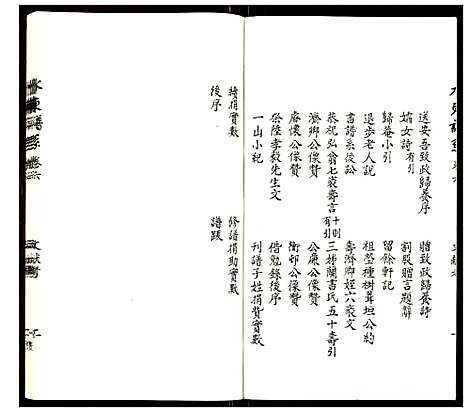 送安吾致政歸養序
贈致政歸養詩
孀女詩有引
割股贈言題辭
歸菴小引
留餘軒記
退步老人說
祖塋種樹葺垣公約
書譜系後訟
壽濟卿姪六袠文
恭祝弘翁七袠壽言十則有引
三姊蘭書氏五十壽引
濟卿公像贊
公廉公像贊
庵懷公像贊
衡邨公像贊
祭陸孝毅先生文
借勉錄後序
一山小紀
刊譜子姓捐貲實數
續捐實數
修譜捐助實數
後序
譜跋
文獻考